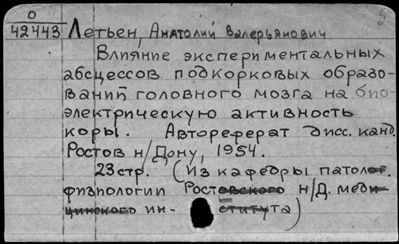 О
42443 Летьен, Анатолий Валерьянович
Влияние экспериментальных
абсцессов подкорковых образо-
ваний головного мозга на био-
электрическую активность
коры. Автореферат дисс. канд.
Ростов н/Дону, 1954.
23 стр. (Из кафедры патолог.
физиологии Ростовского н/Д. меди-
цинского ин- ститута)